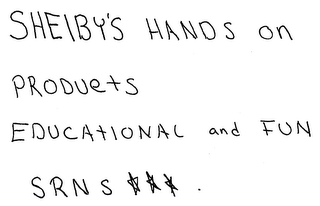 SHElBY'S HANDS on
PRODUctS
EDUCAtIONAL and FUN
SRNS ***.